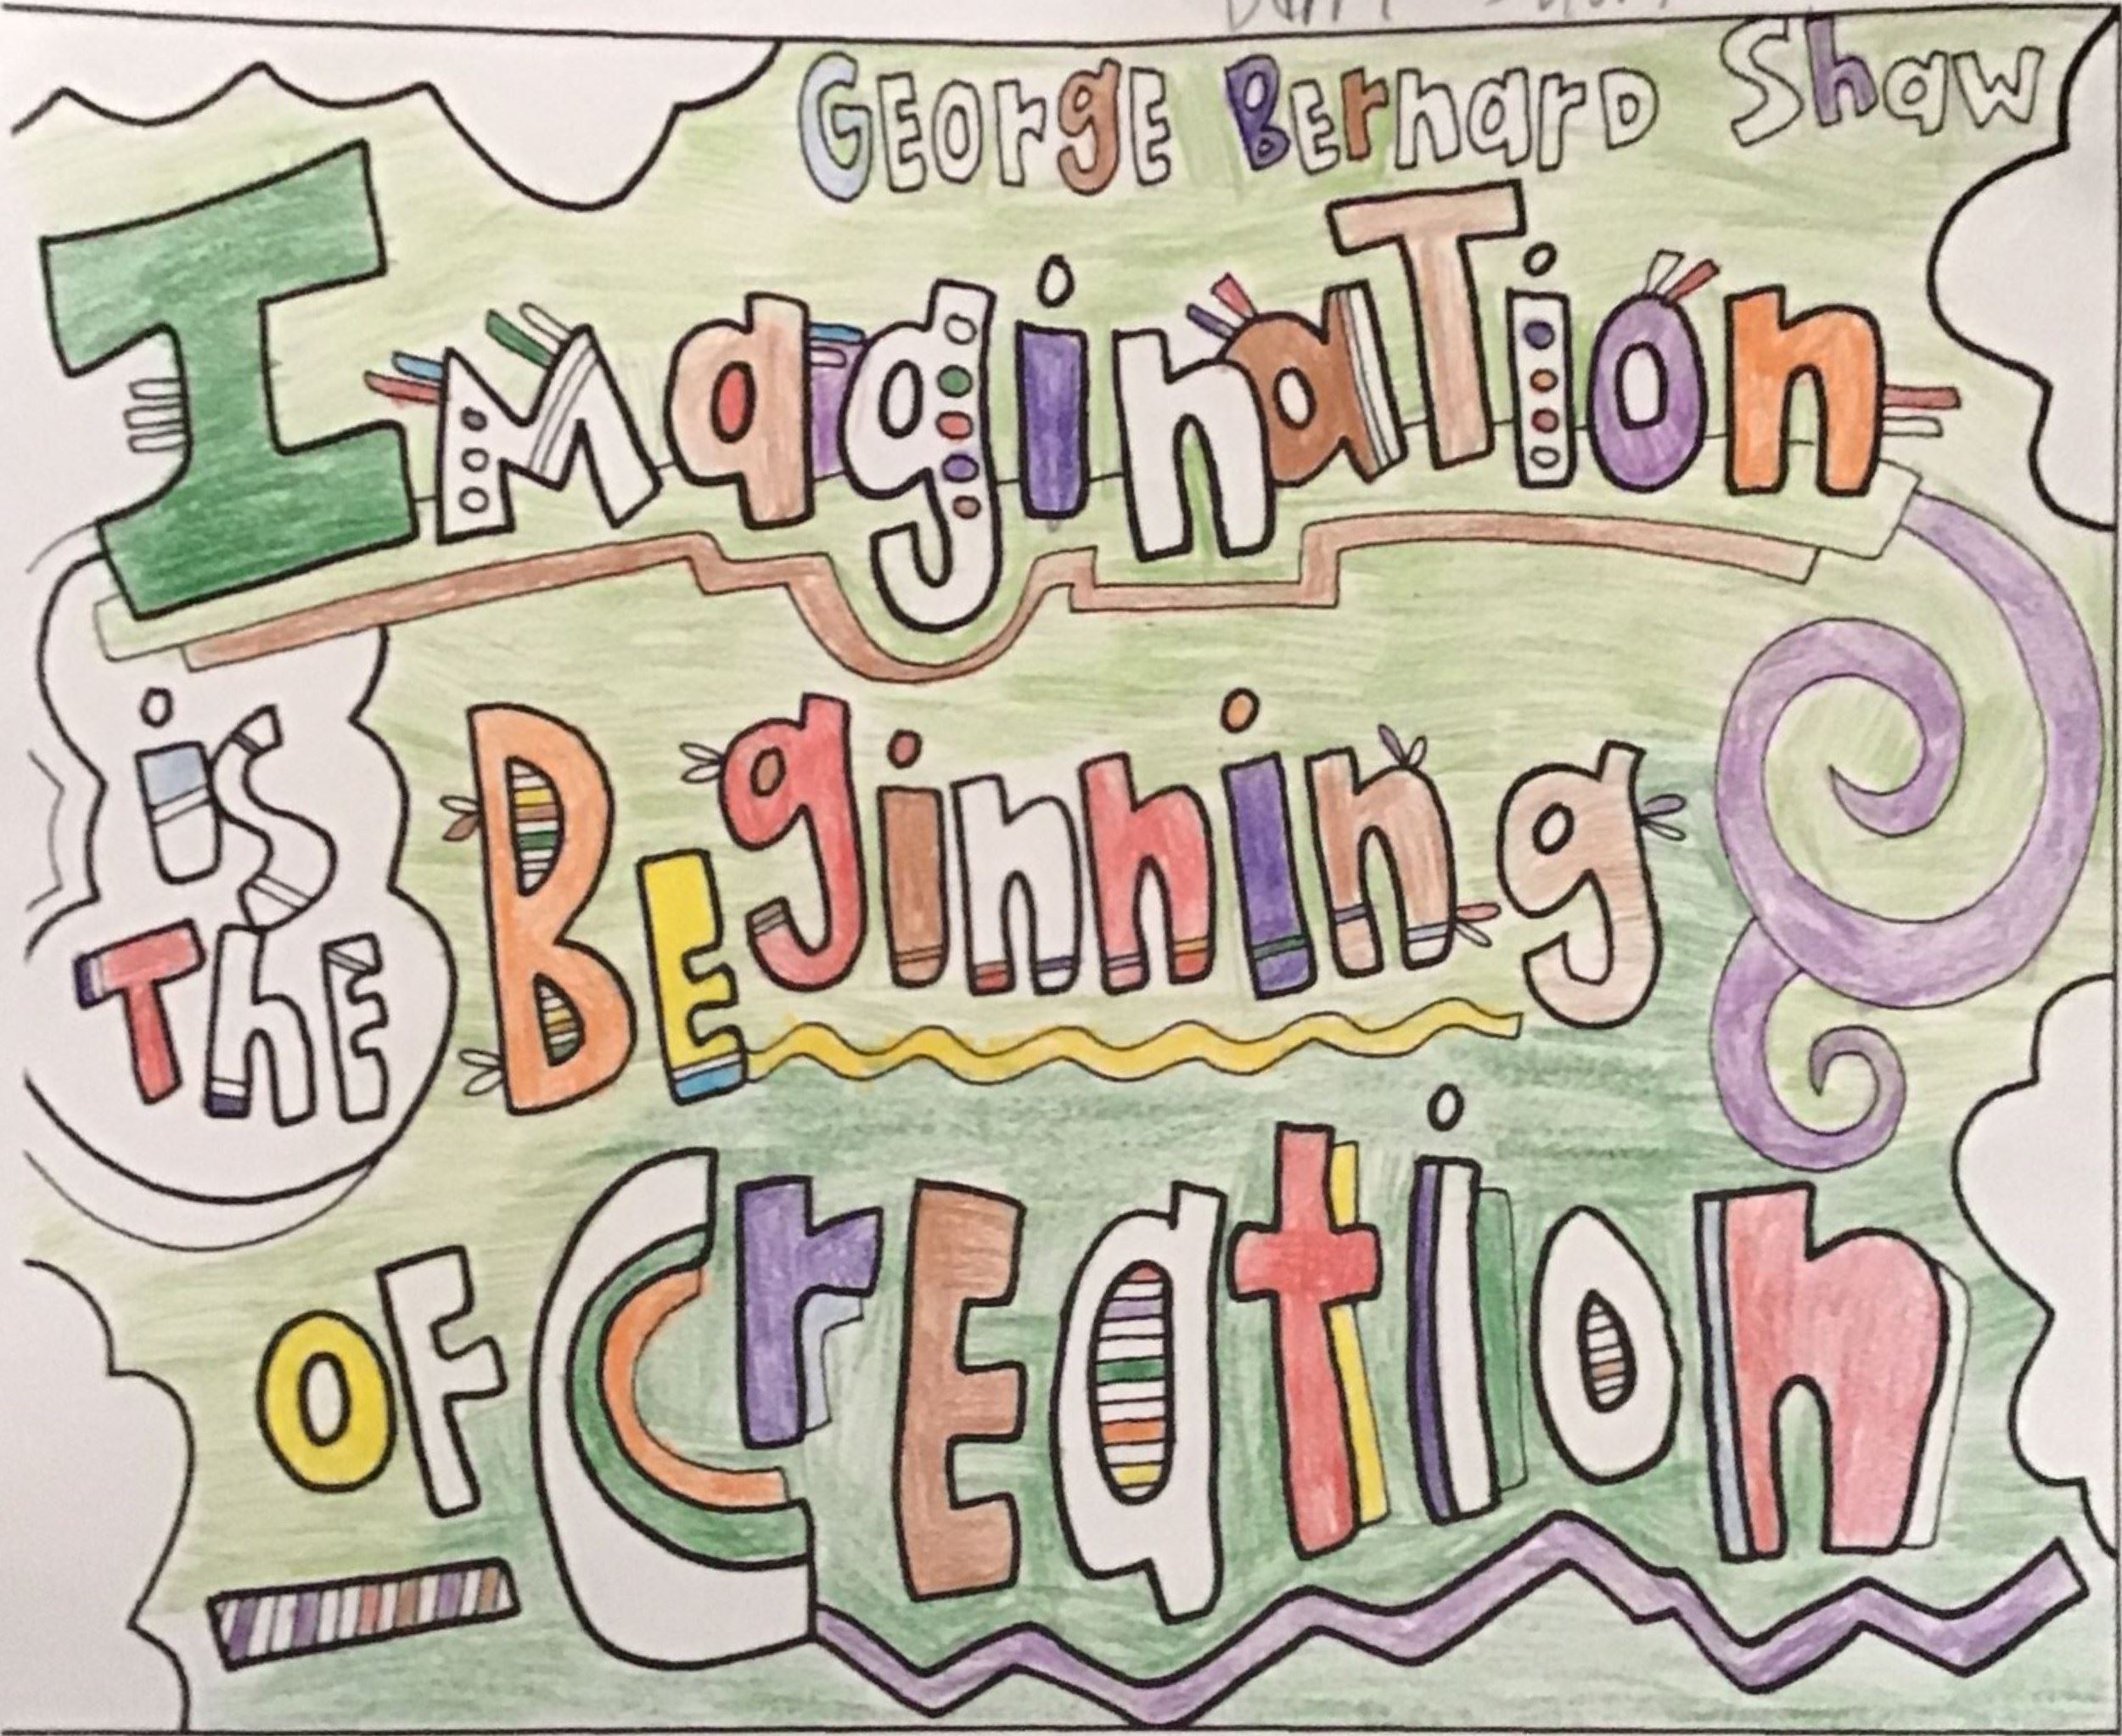 GEorgE BErnarD Shaw
ImaginaTion
is
ThE
BEginning
oF
CrEation